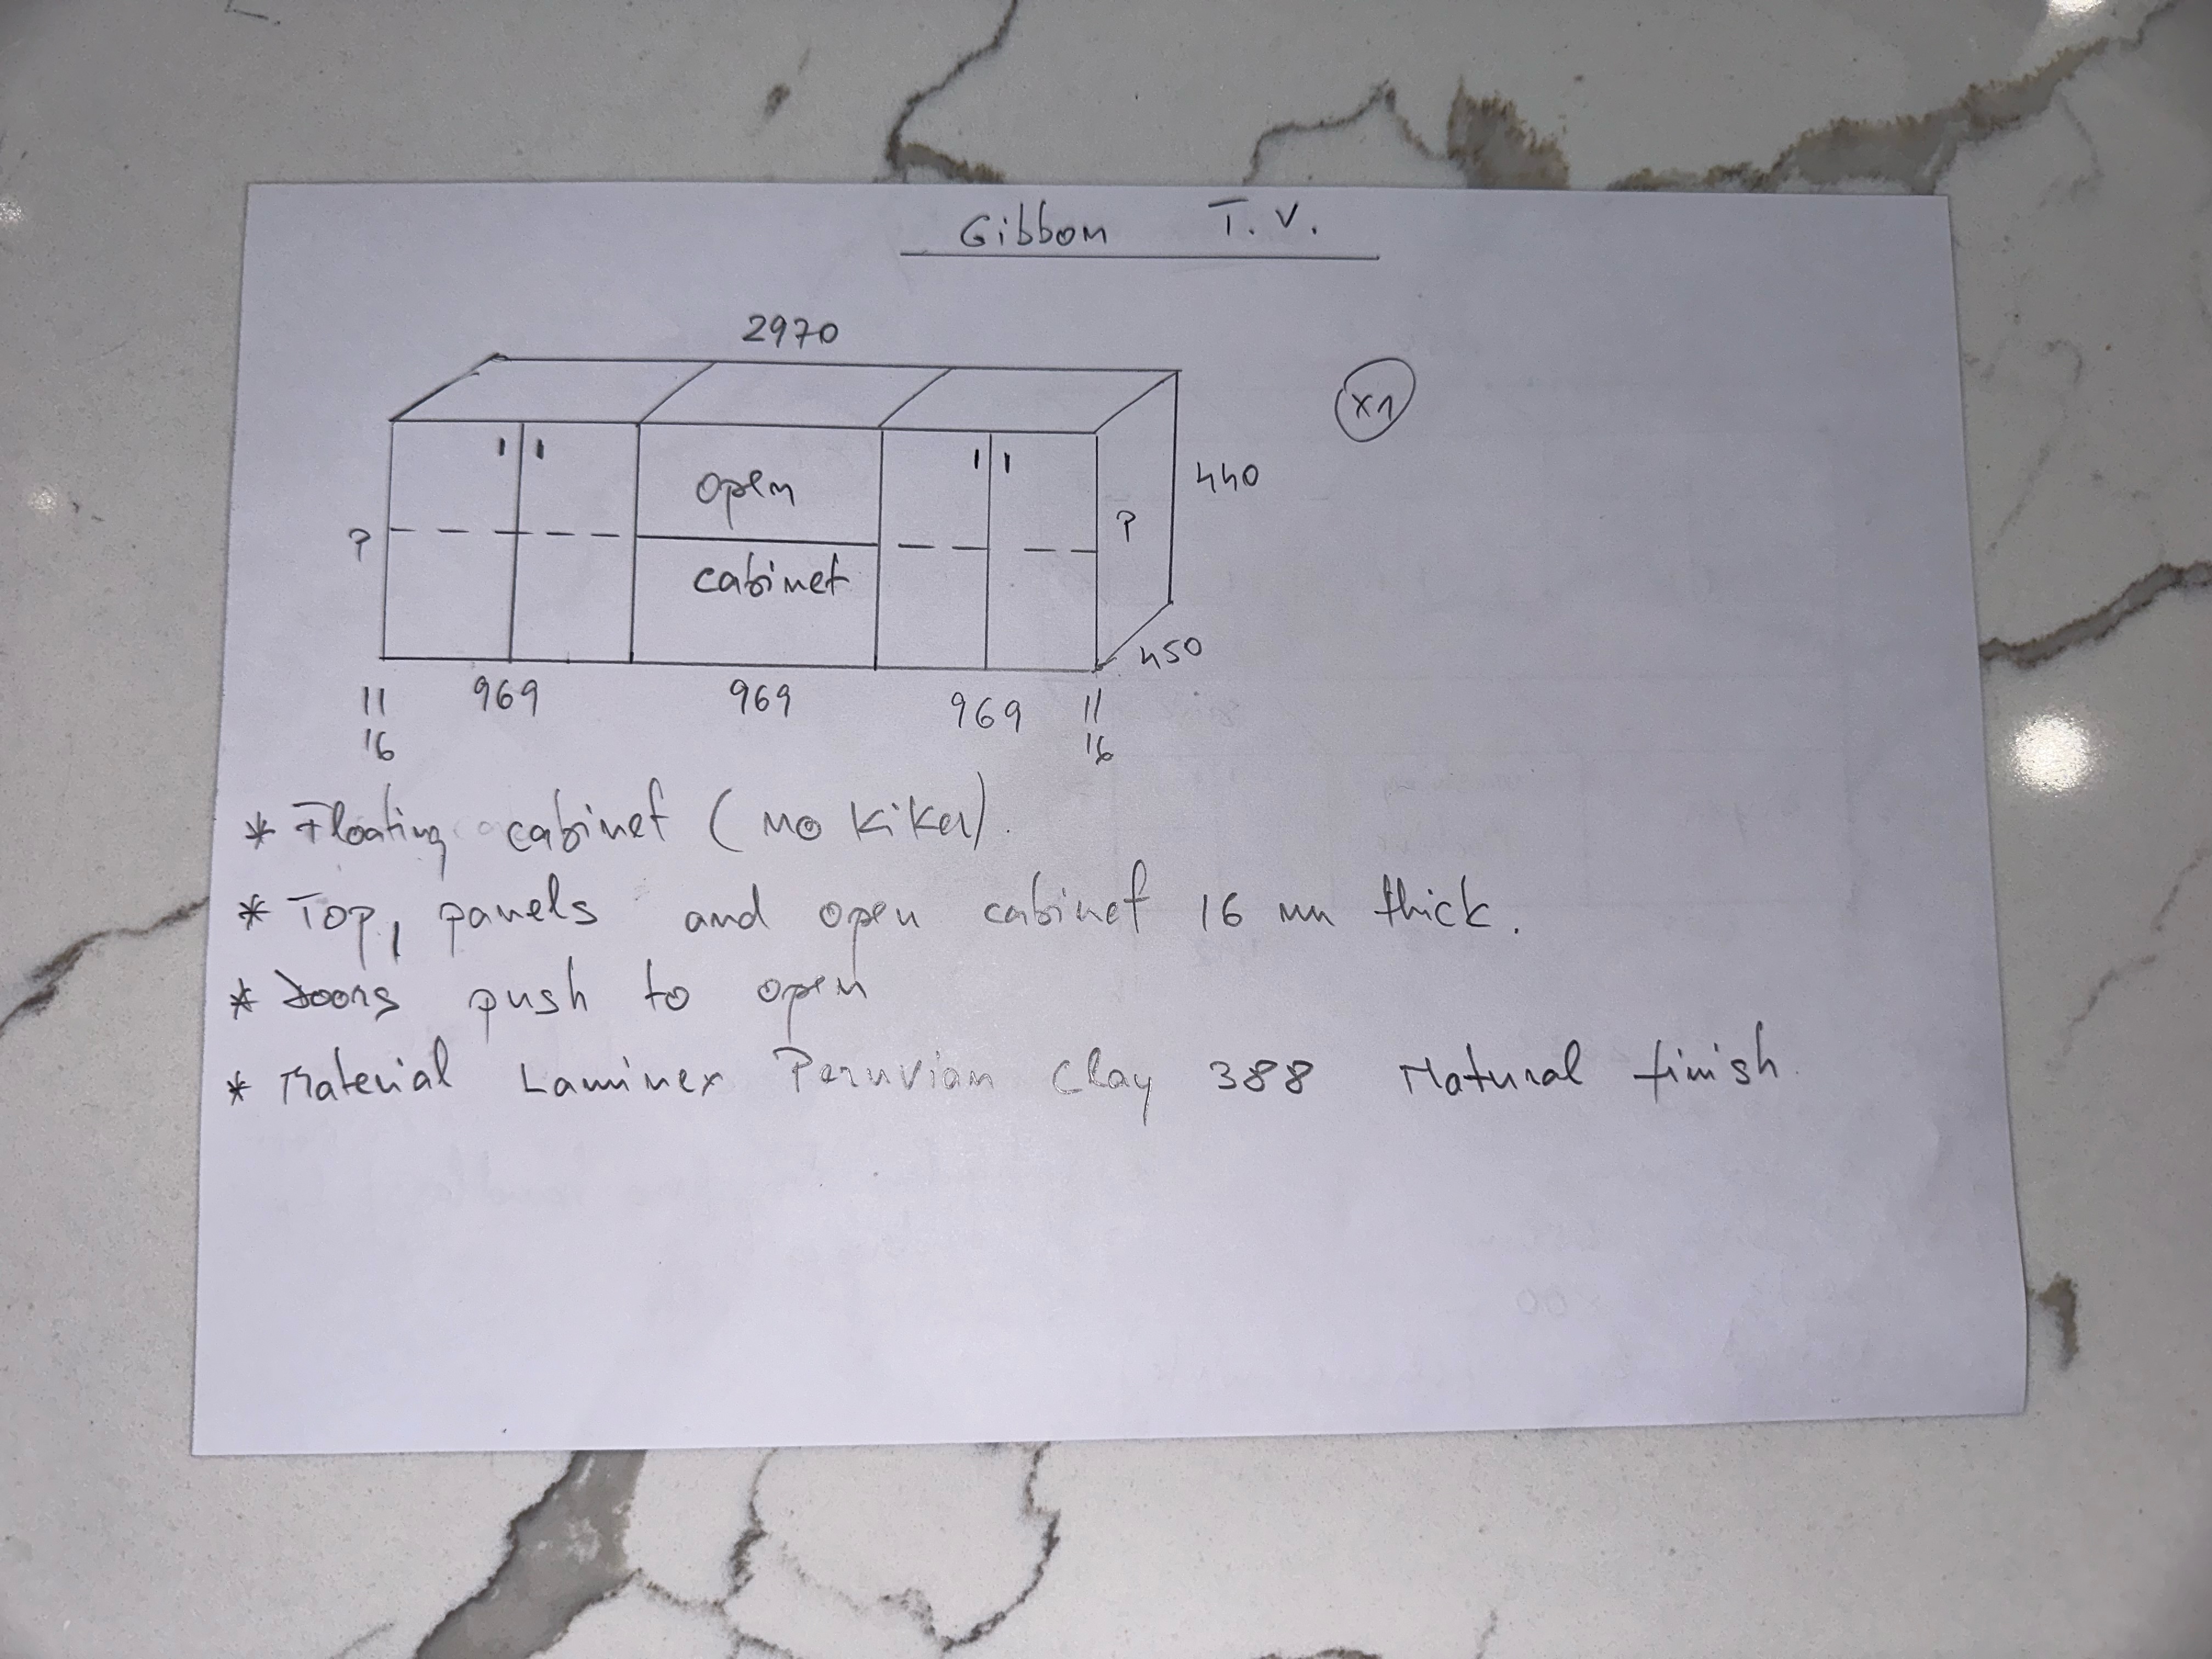 Gibbon T.V.
2970
x1
open
440
P
P
cabinet
450
11 969 969 969 11
16 16
* Floating cabinet (no Kiker).
* Top, panels and open cabinet 16 mm thick.
* Doors push to open
* Material Laminex Peruvian Clay 388 Natural finish.